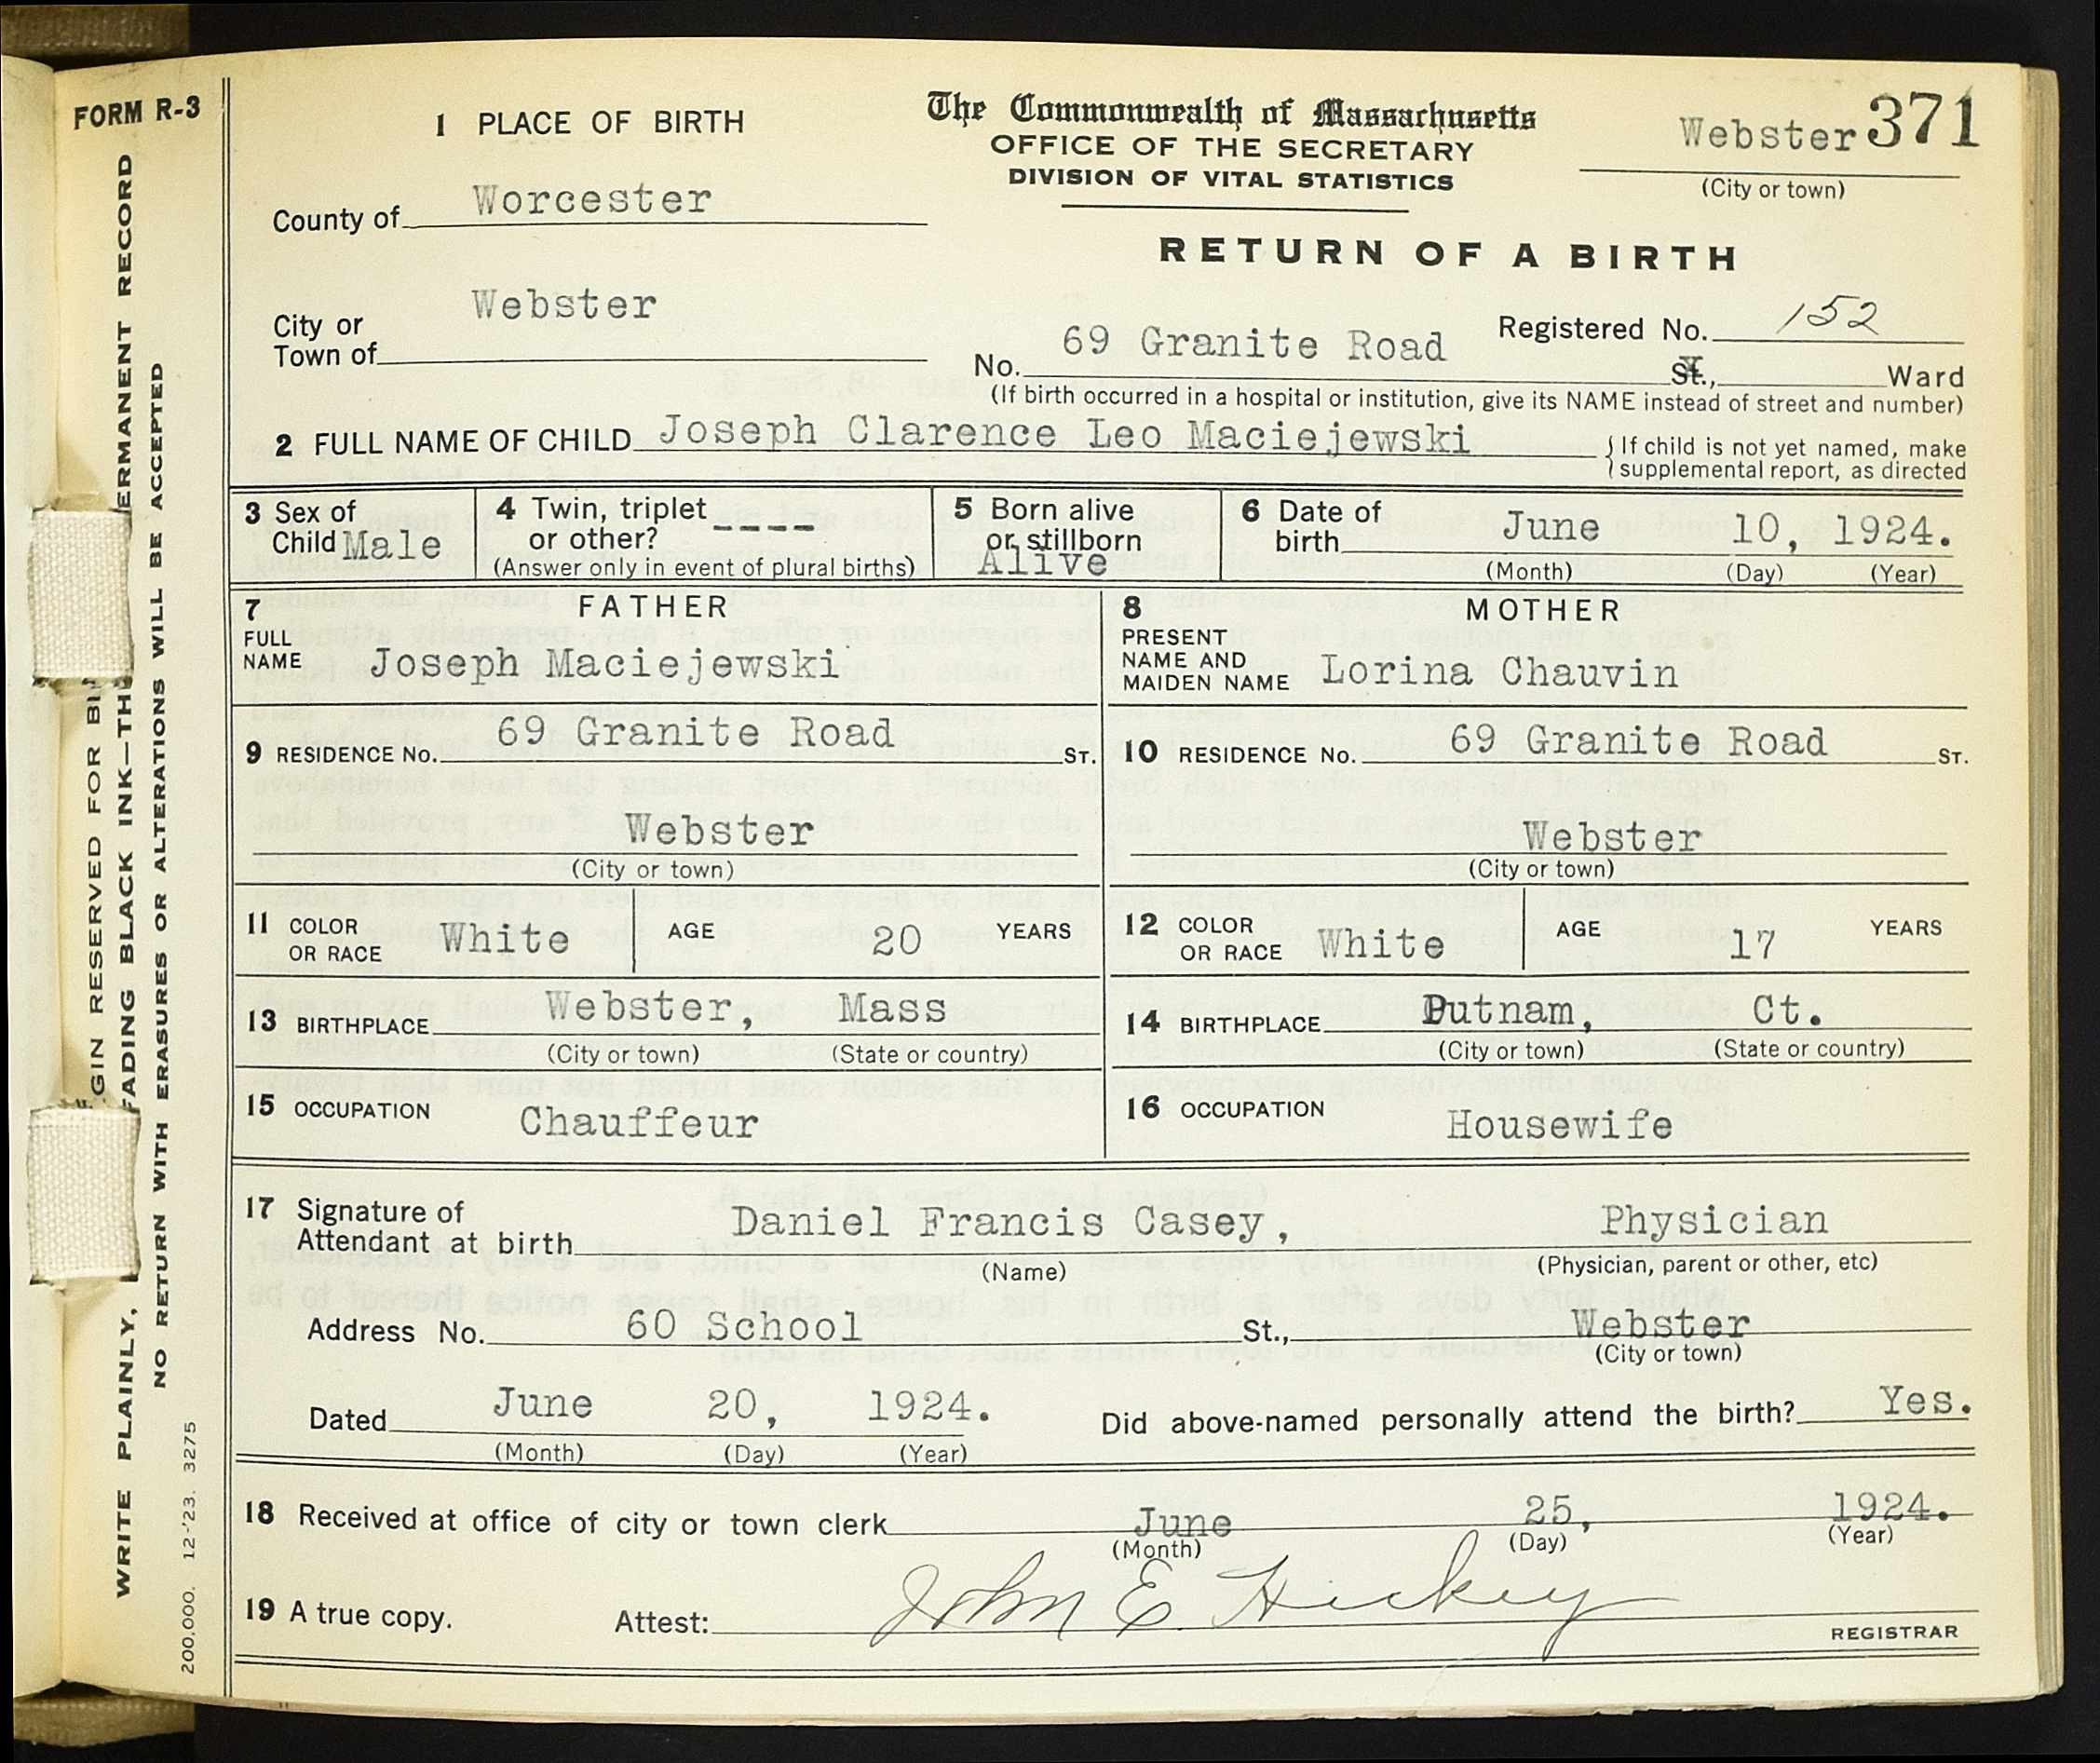 FORM R-3
1 PLACE OF BIRTH
The Commonwealth of Massachusetts
OFFICE OF THE SECRETARY
DIVISION OF VITAL STATISTICS
Webster 371
(City or town)
County of Worcester
RETURN OF A BIRTH
City or Town of Webster
Registered No. 152
No. 69 Granite Road St., Ward
(If birth occurred in a hospital or institution, give its NAME instead of street and number)
2 FULL NAME OF CHILD Joseph Clarence Leo Maciejewski
{If child is not yet named, make
supplemental report, as directed
3 Sex of Child Male
4 Twin, triplet or other? ----
(Answer only in event of plural births)
5 Born alive or stillborn Alive
6 Date of birth June 10, 1924.
(Month) (Day) (Year)
7 FATHER
FULL NAME Joseph Maciejewski
8 MOTHER
PRESENT NAME AND MAIDEN NAME Lorina Chauvin
9 RESIDENCE No. 69 Granite Road ST.
Webster
(City or town)
10 RESIDENCE No. 69 Granite Road ST.
Webster
(City or town)
11 COLOR OR RACE White AGE 20 YEARS
12 COLOR OR RACE White AGE 17 YEARS
13 BIRTHPLACE Webster, Mass
(City or town) (State or country)
14 BIRTHPLACE Putnam, Ct.
(City or town) (State or country)
15 OCCUPATION Chauffeur
16 OCCUPATION Housewife
17 Signature of Attendant at birth Daniel Francis Casey, Physician
(Name) (Physician, parent or other, etc)
Address No. 60 School St., Webster
(City or town)
Dated June 20, 1924.
(Month) (Day) (Year)
Did above-named personally attend the birth? Yes.
18 Received at office of city or town clerk June 25, 1924.
(Month) (Day) (Year)
19 A true copy. Attest: John E. Hickey
REGISTRAR
GIN RESERVED FOR BI
WRITE PLAINLY, FADING BLACK INK—TH ERMANENT RECORD
NO RETURN WITH ERASURES OR ALTERATIONS WILL BE ACCEPTED
200,000. 12-'23. 3275